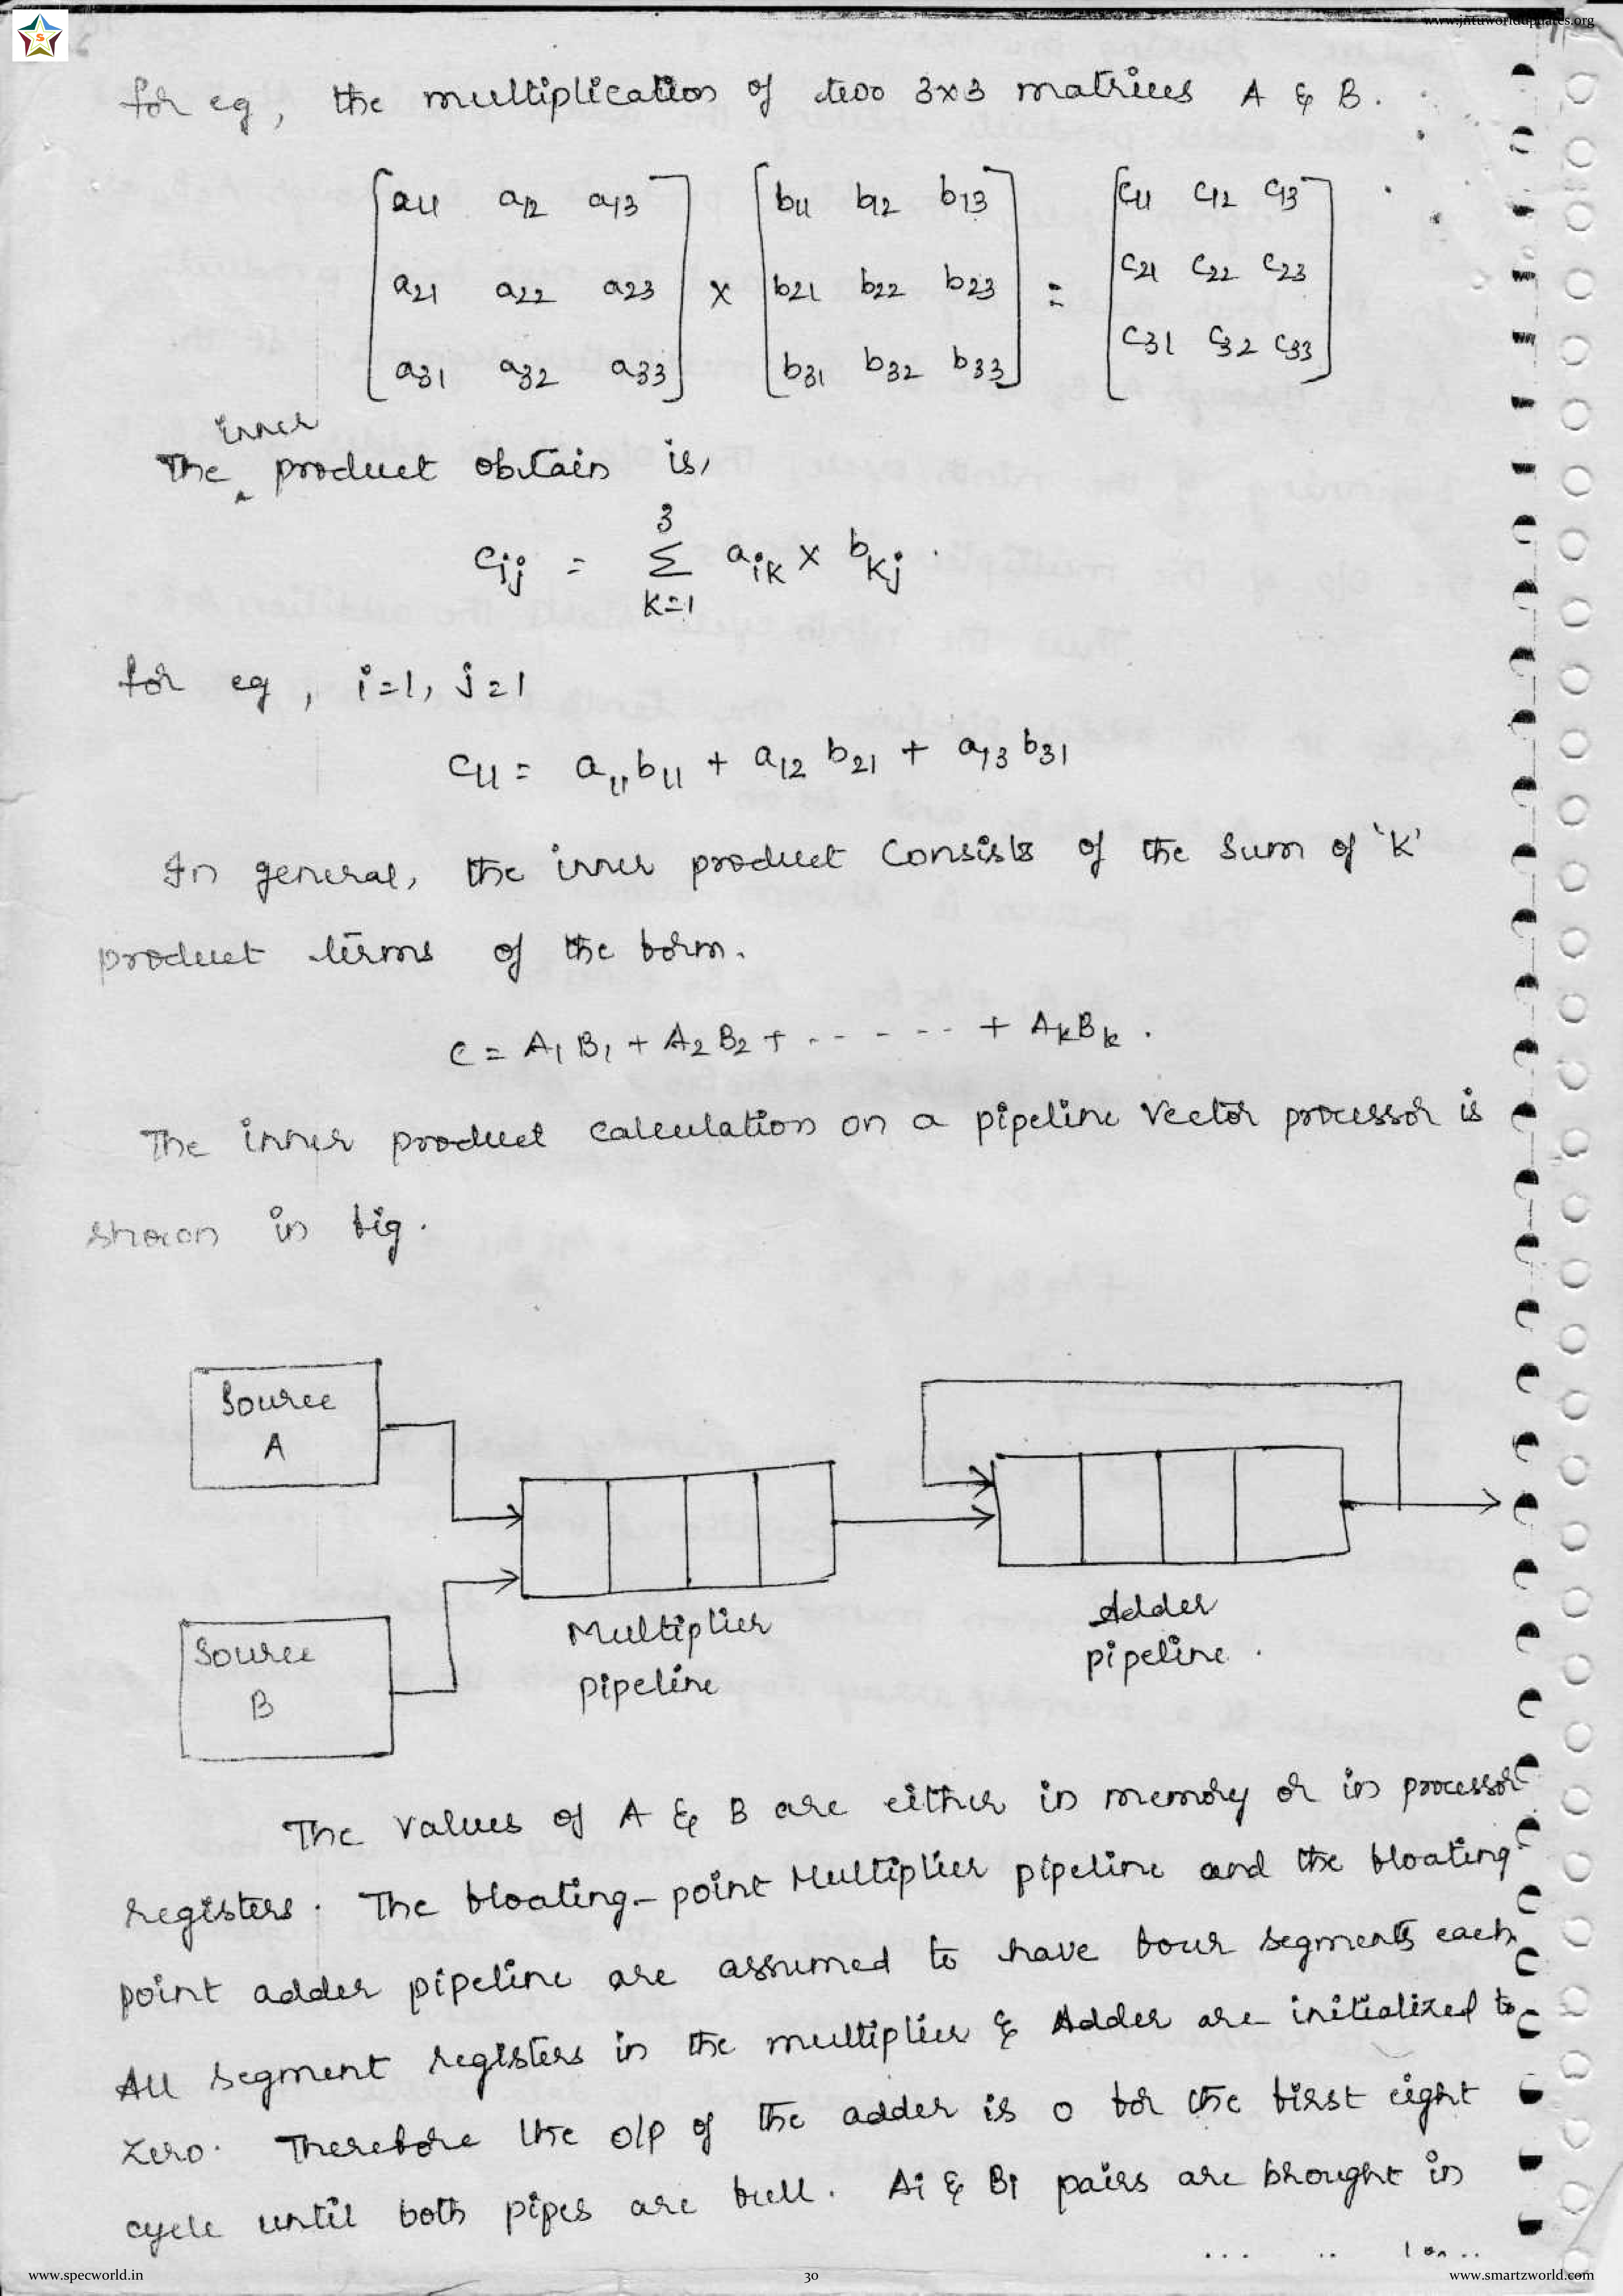 www.jntuworldupdates.org
S
for eg, the multiplication of two 3x3 matrices A & B.
[a11 a12 a13] [b11 b12 b13] [c11 c12 c13]
[a21 a22 a23] x [b21 b22 b23] = [c21 c22 c23]
[a31 a32 a33] [b31 b32 b33] [c31 c32 c33]
The inner product obtain is,
cij = 3 Σ k=1 aik x bkj.
for eg, i=1, j=1
c11 = a11 b11 + a12 b21 + a13 b31
In general, the inner product consists of the sum of 'K'
product terms of the form.
C = A1 B1 + A2 B2 + ------ + Ak Bk.
The inner product calculation on a pipeline vector processor is
shown in fig.
Source
A
Source
B
Multiplier
pipeline
Adder
pipeline.
The values of A & B are either in memory or in processor
registers. The floating-point Multiplier pipeline and the floating
point adder pipeline are assumed to have four segments each.
All segment registers in the multiplier & Adder are initialized to
zero. Therefore the o/p of the adder is 0 for the first eight
cycle until both pipes are full. Ai & Bi pairs are brought in
www.specworld.in
30
www.smartzworld.com